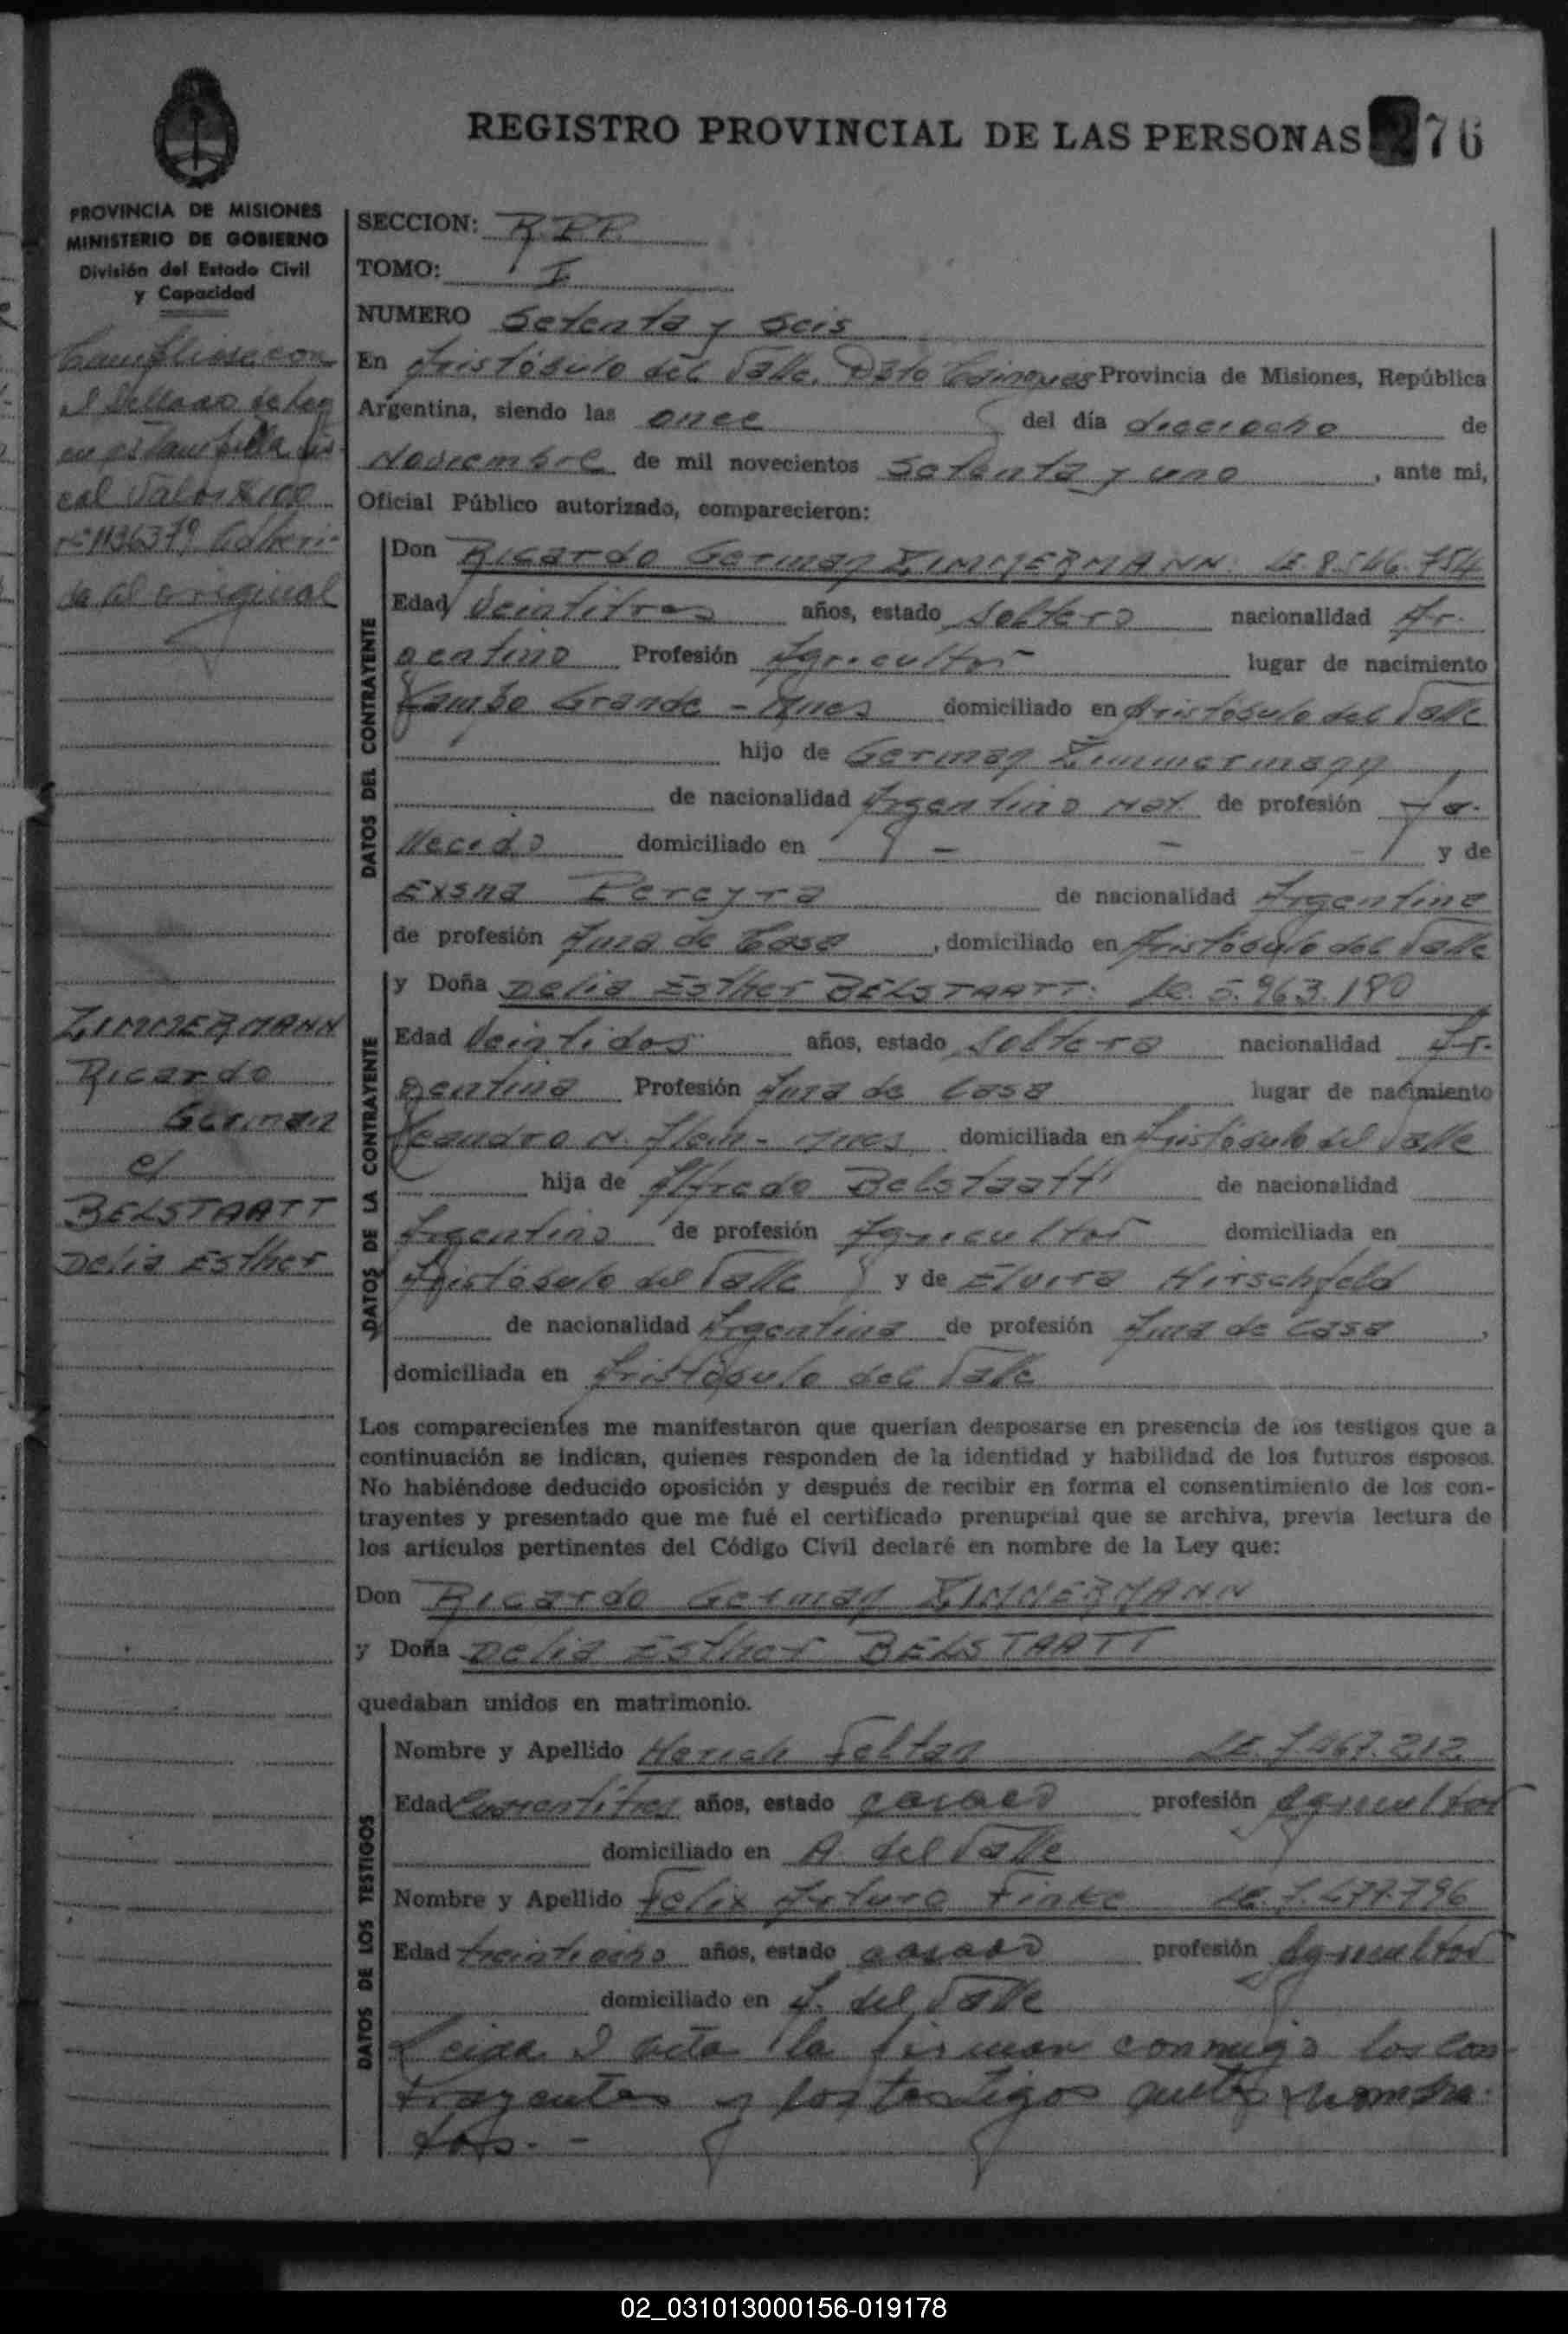 REGISTRO PROVINCIAL DE LAS PERSONAS 276
PROVINCIA DE MISIONES
MINISTERIO DE GOBIERNO
División del Estado Civil
y Capacidad
el sellado de ley
en estampilla fis-
cal valor $ 100
al original
ZIMMERMANN
Ricardo
German
c/
BELSTAATT
Delia Esther
SECCION: R.P.P.
TOMO: I
NUMERO Setenta y Seis
En Aristóbulo del Valle, Dpto Cainguas Provincia de Misiones, República
Argentina, siendo las once del día dieciocho de
Noviembre de mil novecientos Setenta y uno, ante mi,
Oficial Público autorizado, comparecieron:
DATOS DEL CONTRAYENTE
Don Ricardo German ZIMMERMANN. LE. 8.546.754
Edad Veintitres años, estado soltero nacionalidad Ar-
gentino Profesión Agricultor lugar de nacimiento
Campo Grande - Mnes domiciliado en Aristóbulo del Valle
hijo de German Zimmermann
de nacionalidad Argentino Nat. de profesión Fa-
llecido domiciliado en - - y de
Pereyra de nacionalidad Argentina
de profesión Ama de Casa, domiciliado en Aristóbulo del Valle
DATOS DE LA CONTRAYENTE
y Doña Delia Esther BELSTAATT. LC. 5.963.180
Edad Veintidos años, estado soltera nacionalidad Ar-
gentina Profesión Ama de Casa lugar de nacimiento
Leandro N. Alem - Mnes domiciliada en Aristóbulo del Valle
hija de Alfredo Belstaatt de nacionalidad
Argentino de profesión Agricultor domiciliada en
Aristóbulo del Valle y de Elvira Hirschfeld
de nacionalidad Argentina de profesión Ama de Casa,
domiciliada en Aristóbulo del Valle
Los comparecientes me manifestaron que querían desposarse en presencia de los testigos que a
continuación se indican, quienes responden de la identidad y habilidad de los futuros esposos.
No habiéndose deducido oposición y después de recibir en forma el consentimiento de los con-
trayentes y presentado que me fué el certificado prenupcial que se archiva, previa lectura de
los artículos pertinentes del Código Civil declaré en nombre de la Ley que:
Don Ricardo German ZIMMERMANN
y Doña Delia Esther BELSTAATT
quedaban unidos en matrimonio.
DATOS DE LOS TESTIGOS
Nombre y Apellido Feltan LE. 7.467.212
Edad años, estado casado profesión Agricultor
domiciliado en A. del Valle
Nombre y Apellido Felix Arturo Finke LE. 7.477.796
Edad treintiocho años, estado casado profesión Agricultor
domiciliado en A. del Valle
Leida el acta la firman conmigo los con-
trayentes y los testigos antes nombra-
dos. -
02_031013000156-019178